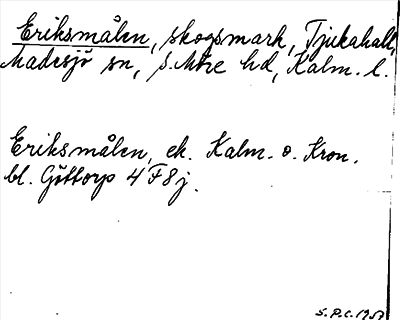 Eriksmålen, skogsmark, Tjukahall,
Madesjö sn, S. Möre hd, Kalm. l.
Eriksmålen, ek. Kalm. o. Kron.
bl. Göttorp 4 F 8 j.
S.P.C. 1957